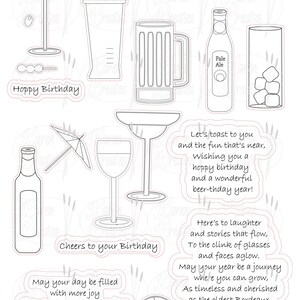 Pale
Ale
Hoppy Birthday
Let's toast to you
and the fun that's near,
Wishing you a
hoppy birthday
and a wonderful
beer-thday year!
Cheers to your Birthday
Here's to laughter
and stories that flow,
To the clink of glasses
and faces aglow.
May your year be a journey
where you can grow,
As timeless and cherished
as the oldest Bordeaux
May your day be filled
with more joy